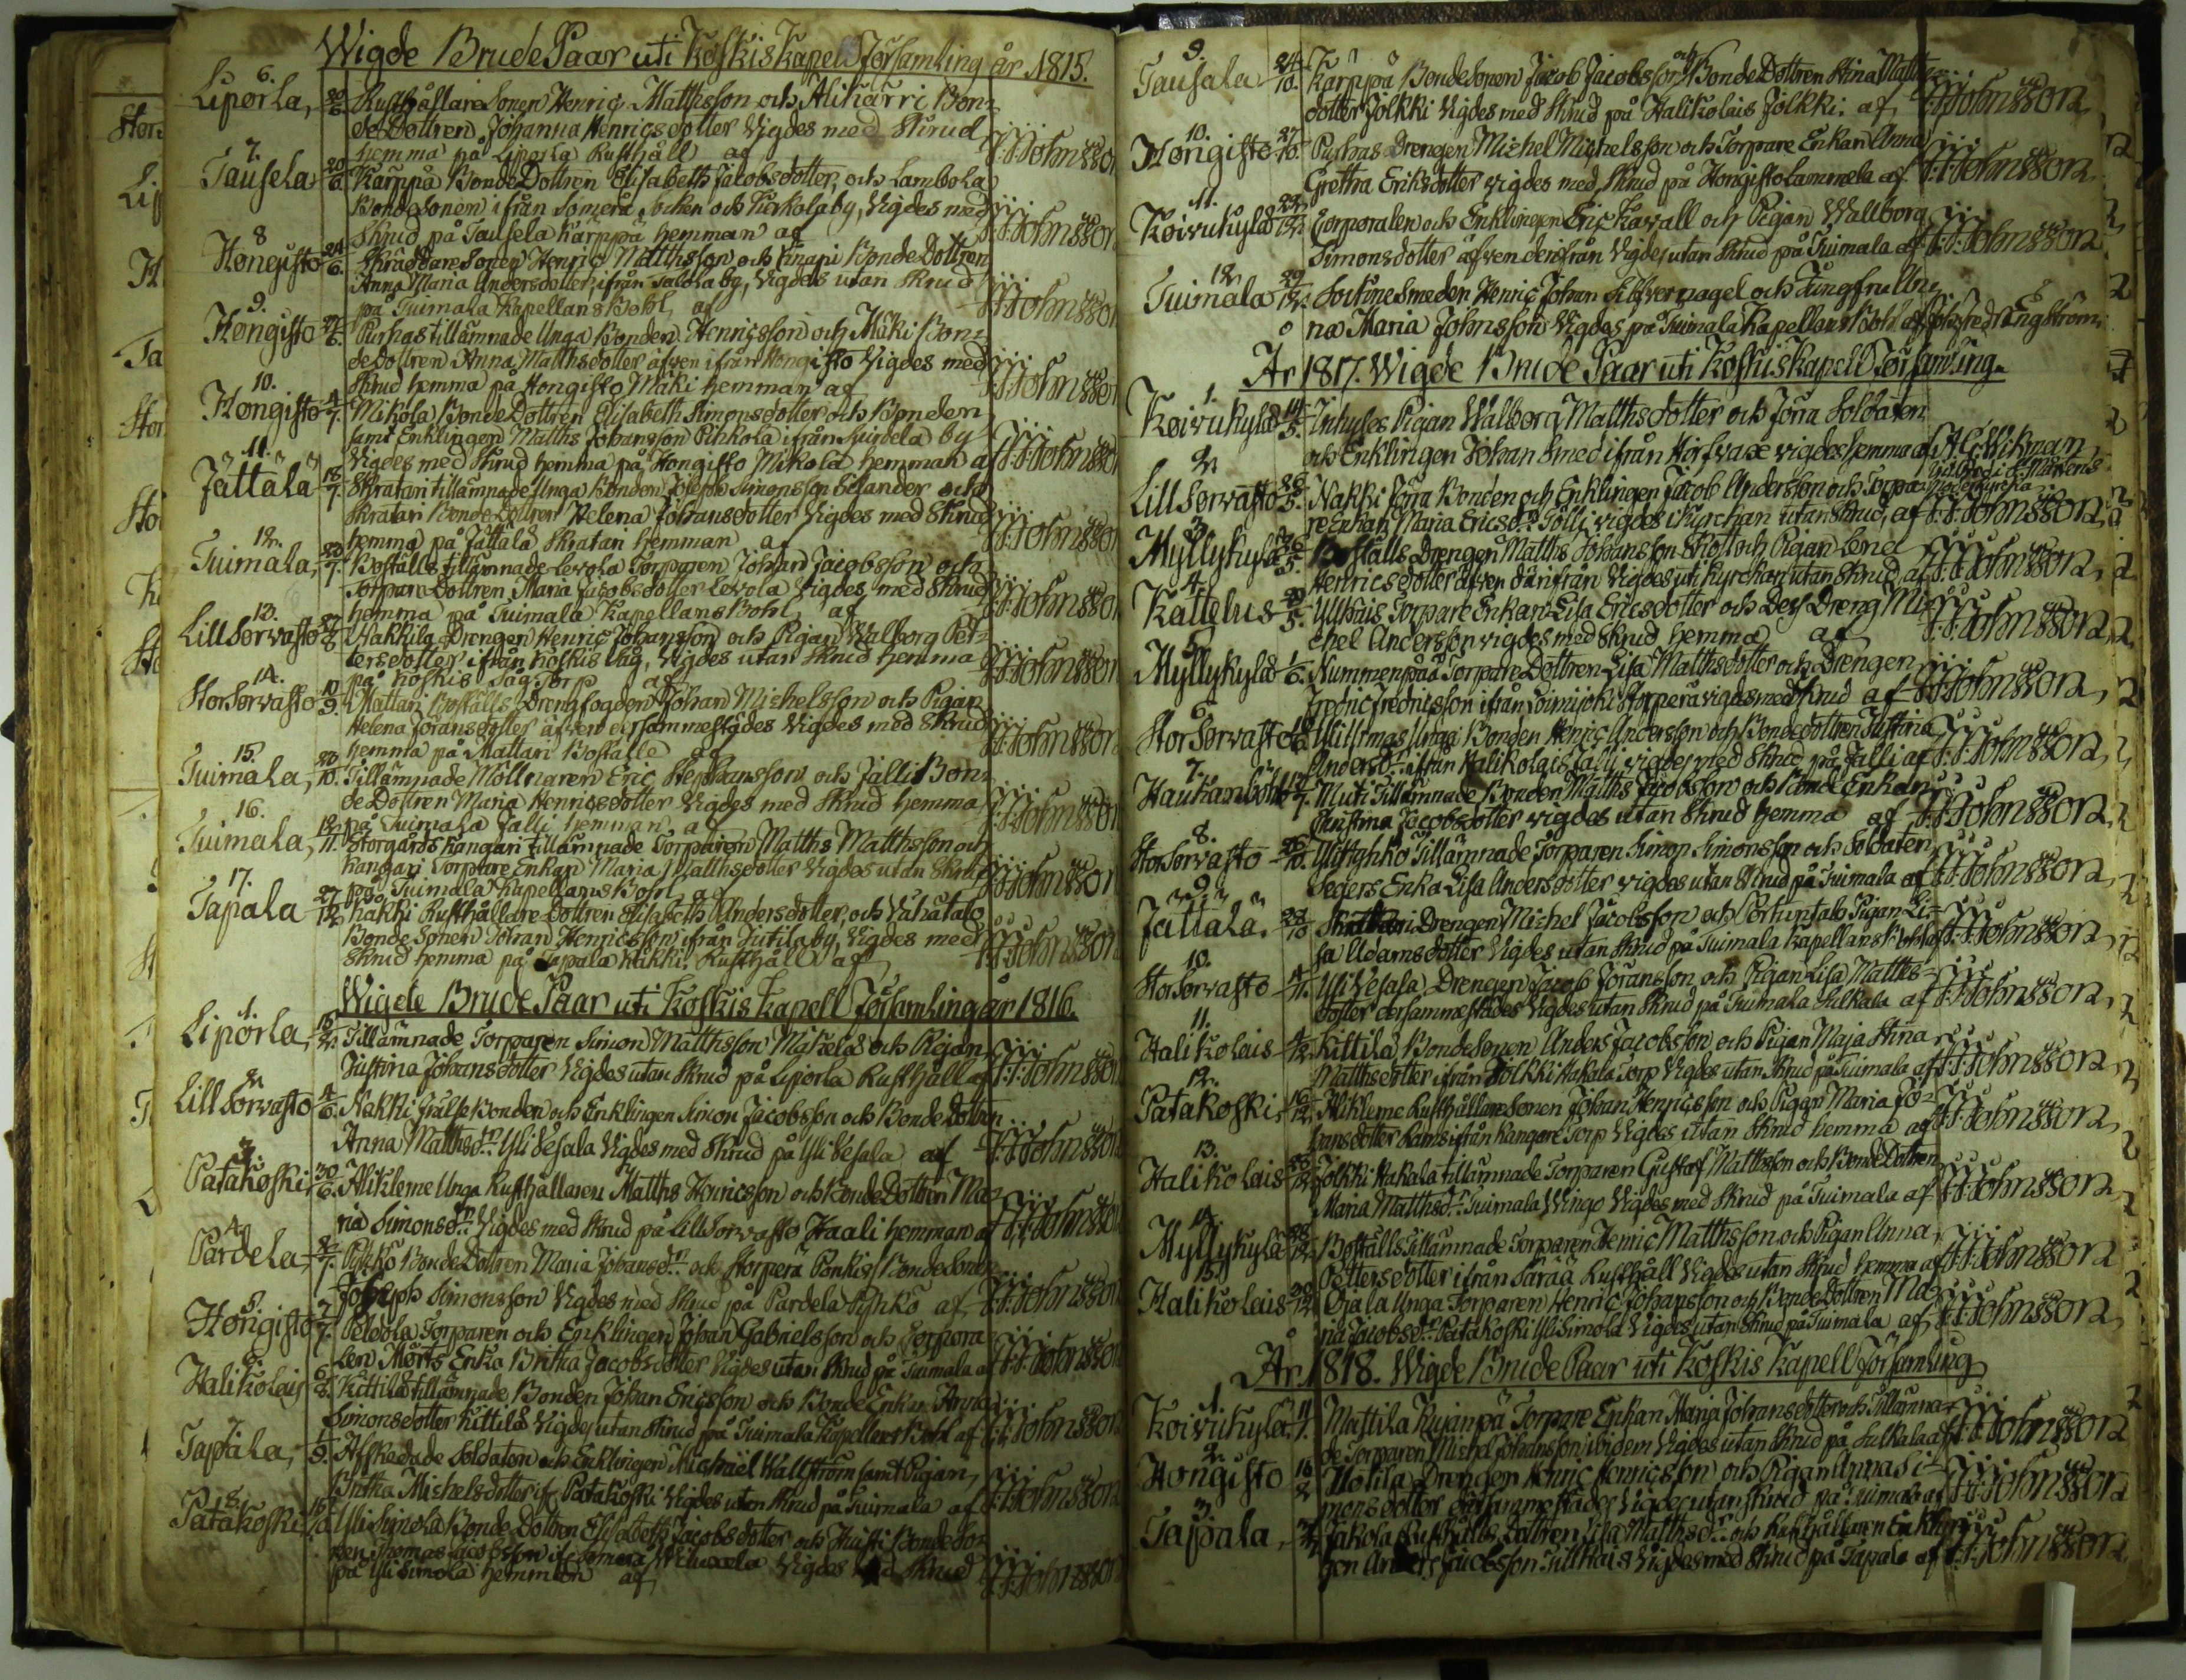 Wigde Brude Paar uti Koskis Kapell Församling år 1815.
6.
Liporla, 20/6. Rusthållare Sonen Henric Matthsson och Alikärri Bon-
de Dottren Johanna Henricsdotter Vigdes med Skrud
hemma på Liporla Rusthåll af J:J:Johnsson
7.
Tausela 20/6. Karppä Bonde Dottren Elisabeth Jacobsdotter, och Lambola
Bonde Sonen ifrån Somero Socken och Kerkola by, Vigdes med
Skrud på Tausela Karppä hemman af J:J:Johnsson
8
Hongisto 24/6. Skräddare Sonen Henric Matthsson och Knapi Bonde Dottren
Anna Maria Andersdotter, ifrån Talola by, Vigdes utan Skrud
på Tuimala Kapellans Bohl, af J:J:Johnsson
9.
Hongisto 27/6. Purhas tillämnade Unga Bonden Henricsson och Mäki Bon-
de Dottren Anna Matthsdotter äfven ifrån Hongisto Vigdes med
Skrud hemma på Hongisto Mäki hemman af J:J:Johnsson
10.
Hongisto 4/7. Mikola Bonde Dottren Elisabeth Simonsdotter och Bonden
samt Enklingen Matths Johansson Pihkola ifrån by
Vigdes med Skrud hemma på Hongisto Mikola hemman af J:J:Johnsson
11.
Jättälä 18/7. Skratari tillämnade Unga Bonden Joseph Simonsson Selander och
Skratari Bonde Dottren Helena Johansdotter Vigdes med Skrud
hemma på Jättälä Skratari hemman af J:J:Johnsson
12.
Tuimala, 20/7. Boställs tillämnade Levola Torparen Johan Jacobsson och
Torpare Dottren Maria Jacobsdotter Levola Vigdes med Skrud
hemma på Tuimala Kapellans Bohl, af J:J:Johnsson
13.
Lill Sorvasto 27/8 Hakkila Drengen Henric Johansson och Pigan Walborg Pet-
tersdotter ifrån Koskis Såg, Vigdes utan Skrud hemma
på Koskis Såg Torp af J:J:Johnsson
14.
Stor Sorvasto 10/9. Mattari Boställs Drengfogden Johan Michelsson och Pigan
Helena Jöransdotter äfven dersammestädes Vigdes med Skrud
hemma på Mattari Boställe af J:J:Johnsson
15.
Tuimala, 20/10. Tillämnade Möllnaren Eric Stephansson och Jalli Bon-
de Dottren Maria Henricsdotter Vigdes med Skrud hemma
på Tuimala Jalli hemman af J:J:Johnsson
16.
Tuimala, 12/11. Storgårds Kangari tillämnade Torparen Matths Matthsson och
Kangari Torpare Enkan Maria Matthsdotter Vigdes utan Skrud
på Tuimala Kapellans Bohl, af J:J:Johnsson
17.
Tapala 27/12 Kakki Rusthållare Dottren Elisabeth Andersdotter, och Vähätalo
Bonde Sonen Johan Henricsson ifrån Jutila by, Vigdes med
Skrud hemma på Tapala Kakki Rusthåll af J:J:Johnsson
Wigde Brude Paar uti Koskis Kapell Församling år 1816.
1.
Liporla, Tillämnade Torparen Simon Matthsson Mäkelä och Pigan
Justina Johansdotter Vigdes utan Skrud på Liporla Rusthåll af J:J:Johnsson
2.
Lill Sorvasto 4/6. Nakki frälse Bonden och Enklingen Simon Jacobsson och Bonde Dottren
Anna Matthsdr. Yli Vesala Vigdes med Skrud på Yli Vesala af J:J:Johnsson
3.
Patakoski, 30/6. Alikleme Unga Rusthållaren Matths Henricsson och Bonde Dottren Ma-
ria Simonsdr. Vigdes med Skrud på Lill Sorvasto Haali hemman af J:J:Johnsson
4
Pardela, 2/7. Pyhkö Bonde Dottren Maria Johansdr. och Storpera Bonde Sonen
Joseph Simonsson Vigdes med Skrud på Pardela Pyhkö af J:J:Johnsson
5.
Hongisto 7/7. Peldola Torparen och Enklingen Johan Gabrielsson och Corpora-
len Mörts Enka Britha Jacobsdotter Vigdes utan Skrud på Tuimala af J:J:Johnsson
6
Halikolais Kittilä tillämnade Bonden Johan Ericsson och Bonde Enkan Anna
Simonsdotter Kittilä Vigdes utan Skrud på Tuimala Kapellans Bohl af J:J:Johnsson
7.
Tapala, 1/9. Afskedade Soldaten och Enklingen Michael Wallström samt Pigan
Britha Michelsdotter if: Patakoski Vigdes utan Skrud på Tuimala af J:J:Johnsson
8.
Patakoski Yli Simola Bonde Dottren Elisabeth Jacobsdotter och Bonde So-
nen Thomas Jacobsson if: Somero Vigdes med Skrud
på Yli Simola hemman af J:J:Johnsson
9.
Tausala 24/10. Karppä Bonde Sonen Jacob Jacobsson och Bonde Dottren Stina Matths-
dotter Jolkki Vigdes med Skrud på Halikolais Jolkki. af J:J:Johnsson
10.
Hongisto 27/10. Purhas Drengen Michel Michelsson och Torpare Enkan Anna
Grettha Eriksdotter vigdes med Skrud på Hongisto Lammela af J:J:Johnsson
11.
Koivukylä Corporalen och Enklingen Eric Kavall och Pigan Wallborg
Simonsdotter äfven derifrån Vigdes utan Skrud på Tuimala af J:J:Johnsson
12
Tuimala 29/12. Sockne Smeden Henric Johan Silfvernagel och Jungfru An-
na Maria Johnsson Vigdes på Tuimala Kapellans Bohl af Joh: Fredr: Engström
År 1817. Wigde Brude Paar uti Koskis Kapell Församling.
1.
Koivukylä 14/3. Inhyses Pigan Walborg Matthsdotter och Jöra Soldaten
och Enklingen Johan Smed ifrån vigdes hemma af A.G. Wikman
2.
Lill Sorvasto 26/5. Nakki Jöra Bonden och Enklingen Jacob Andersson och Torpa-
re Enkan Maria Ericsdr. Tölli vigdes i Kyrckan utan Skrud, af J:J:Johnsson
3.
Myllykylä Boställs Drengen Matths Johansson Sköt och Pigan Lena
Henricsdotter äfven därifrån Vigdes uti Kyrckan utan Skrud af J:J:Johnsson
4.
Kattelus 29/5. Torpare Enkan Lisa Ericsdotter och Dess Dreng Mi-
chel Andersson vigdes med Skrud hemma af J:J:Johnsson
5
Myllykylä 1/6. Nummenpää Torpare Dottren Lisa Matthsdotter och Drengen
Fredric Fredricsson ifrån vigdes med Skrud af J:J:Johnsson
6.
Stor Sorvasto Unga Bonden Henric Andersson och Bonde Dottren Justina
Andersdr. ifrån Halikolais Jalli vigdes med Skrud på Jalli af J:J:Johnsson
7.
Haukanböle Muti Tillämnade Bonden Matths Jacobsson och Bonde Enkan
Christina Jacobsdotter vigdes utan Skrud hemma af J:J:Johnsson
8.
Stor Sorvasto Tillämnade Torparen Simon Simonsson och Soldaten
Segers Enka Lisa Andersdotter vigdes utan Skrud på Tuimala af J:J:Johnsson
9.
Jättälä. 28/10 Skratari Drengen Michel Jacobsson och Pigan Li-
sa Adamsdotter Vigdes utan Skrud på Tuimala Kapellans Bohl af J:J:Johnsson
10.
Stor Sorvasto 4/11. Yli Vesala Drengen Jacob Jöransson och Pigan Lisa Matths-
dotter dersammestädes Vigdes utan Skrud på Tuimala Sulkala af J:J:Johnsson
11.
Halikolais 4/12 Kittilä Bonde Sonen Anders Jacobsson och Pigan Maja Stina
Matthsdotter ifrån Jolkki Hakala Torp Vigdes utan Skrud på Tuimala af J:J:Johnsson
12.
Patakoski, Alikleme Rusthållare Sonen Johan Henricsson och Pigan Maria Jo-
hansdotter ifrån Kangare Torp Vigdes utan Skrud hemma af J:J:Johnsson
13.
Halikolais Jolkki Hakala tillämnade Torparen Gustaf Matthsson och Bonde Dottren
Maria Matthsdr. Tuimala Wingo Vigdes med Skrud på Tuimala af J:J:Johnsson
14.
Myllykylä 28/12 Boställs Tillämnade Torparen Henric Matthsson och Pigan Anna
Pettersdotter ifrån Rusthåll Vigdes utan Skrud hemma af J:J:Johnsson
15.
Halikolais Ojala Unga Torparen Henric Johansson och Bonde Dottren Ma-
ria Jacobsdr. Patakoski Yli Simola Vigdes utan Skrud på Tuimala af J:J:Johnsson
År 1818. Wigde Brude Paar uti Koskis Kapell Församling
1.
Koivukylä. 11/1. Mattila Torpare Enkan Maria Johansdotter och Tillämna-
de Torparen Michel Johansson ibidem Vigdes utan Skrud på Sulkala af J:J:Johnsson
2.
Hongisto Drengen Henric Henricsson och Pigan Anna Si-
monsdotter dersammestädes Vigdes utan Skrud på Tuimala af J:J:Johnsson
3.
Tapala, Jakola Rusthålls Dottren Lisa Matthsdr. och Rusthållaren Enklin-
gen Anders Jacobsson Vigdes med Skrud på Tapala af J:J:Johnsson